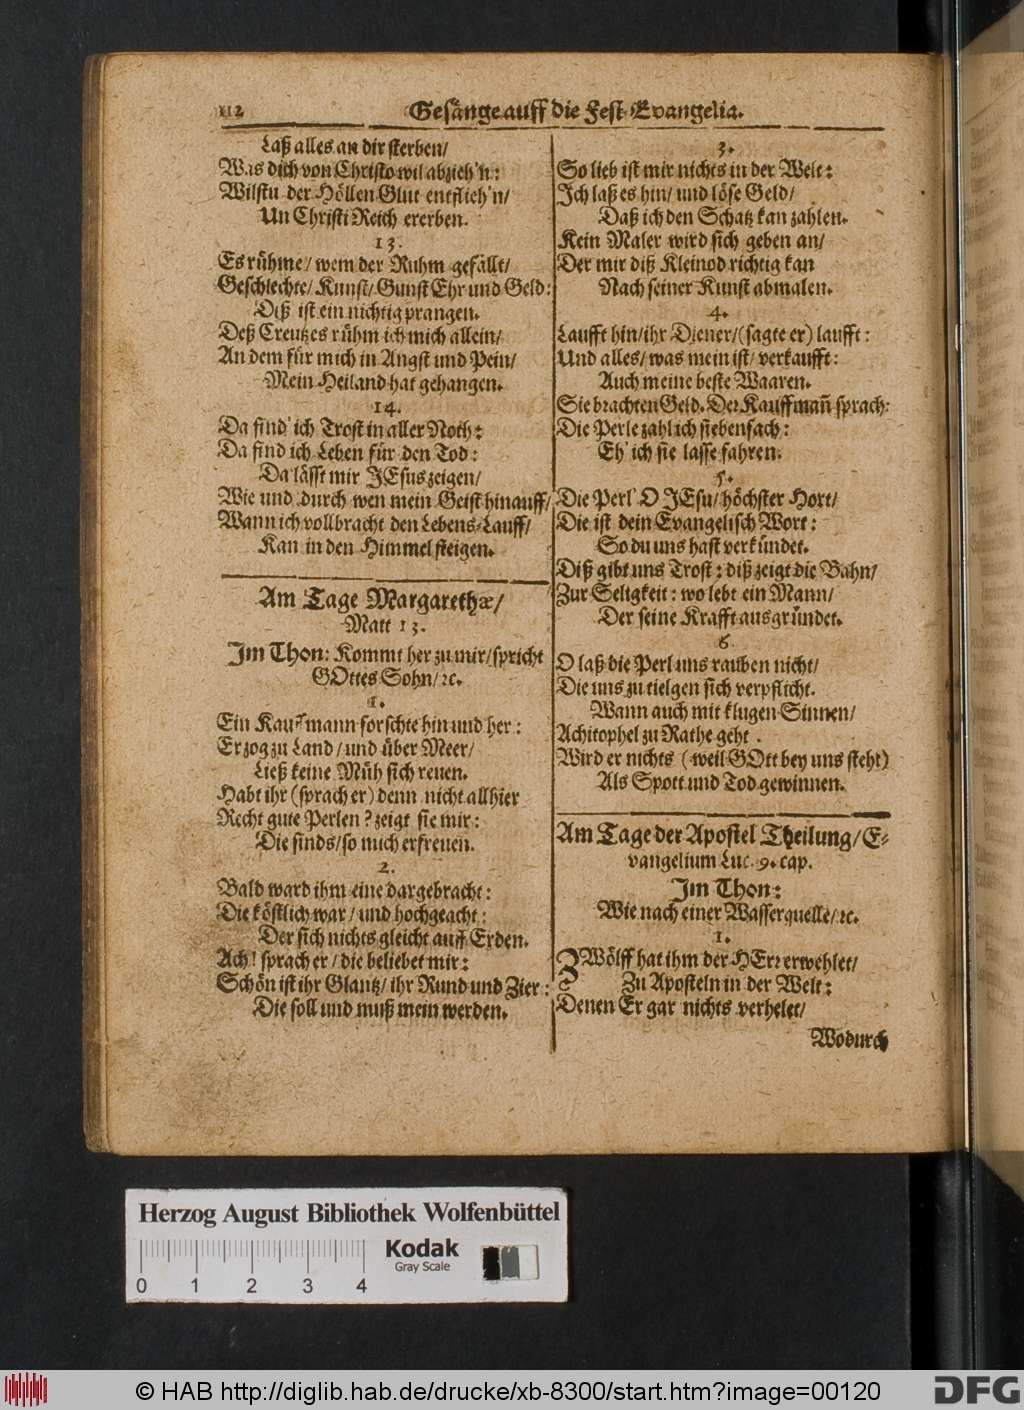 112 Gesänge auff die Fest-Evangelia.
Laß alles an dir sterben/
Was dich von Christo wil abzieh'n:
Wilstu der Höllen Glut entflieh'n/
Un Christi Reich ererben.
13.
Es rühme/ wem der Ruhm gefällt/
Geschlechte/ Kunst/ Gunst Ehr und Geld:
Diß ist ein nichtig prangen.
Deß Creutzes rühm ich mich allein/
An dem für mich in Angst und Pein/
Mein Heiland hat gehangen.
14.
Da find' ich Trost in aller Noth:
Da find ich Leben für den Tod:
Da lässt mir JEsus zeigen/
Wie und durch wen mein Geist hinauff/
Wann ich vollbracht den Lebens-Lauff/
Kan in den Himmel steigen.
Am Tage Margarethæ/
Matt 13.
Im Thon: Kommt her zu mir/ spricht
GOttes Sohn/ ꝛc.
1.
Ein Kauffmann forschte hin und her:
Er zog zu Land/ und über Meer/
Ließ keine Müh sich reuen.
Habt ihr (sprach er) denn nicht allhier
Recht gute Perlen? zeigt sie mir:
Die sinds/ so mich erfreuen.
2.
Bald ward ihm eine dargebracht:
Die köstlich war/ und hochgeacht:
Der sich nichts gleicht auff Erden.
Ach! sprach er/ die beliebet mir:
Schön ist ihr Glantz/ ihr Rund und Zier:
Die soll und muß mein werden.
3.
So lieb ist mir nichts in der Welt:
Ich laß es hin/ und löse Geld/
Daß ich den Schatz kan zahlen.
Kein Maler wird sich geben an/
Der mir diß Kleinod richtig kan
Nach seiner Kunst abmalen.
4.
Laufft hin/ ihr Diener/ (sagte er) laufft:
Und alles/ was mein ist/ verkaufft:
Auch meine beste Waaren.
Sie brachten Geld. Der Kauffmañ sprach:
Die Perle zahl ich siebenfach:
Eh' ich sie lasse fahren.
5.
Die Perl' O JEsu/ höchster Hort/
Die ist dein Evangelisch Wort:
So du uns hast verkündet.
Diß gibt uns Trost: diß zeigt die Bahn/
Zur Seligkeit: wo lebt ein Mann/
Der seine Krafft ausgründet.
6.
O laß die Perl uns rauben nicht/
Die uns zu tielgen sich verpflicht.
Wann auch mit klugen Sinnen/
Achitophel zu Rathe geht.
Wird er nichts (weil GOtt bey uns steht)
Als Spott und Tod gewinnen.
Am Tage der Apostel Theilung/ E-
vangelium Luc. 9. cap.
Im Thon:
Wie nach einer Wasserquelle/ ꝛc.
1.
ZWölff hat ihm der HErr erwehlet/
Zu Aposteln in der Welt:
Denen Er gar nichts verhelet/
Wodurch
Herzog August Bibliothek Wolfenbüttel
Kodak
Gray Scale
0 1 2 3 4
© HAB http://diglib.hab.de/drucke/xb-8300/start.htm?image=00120
DFG